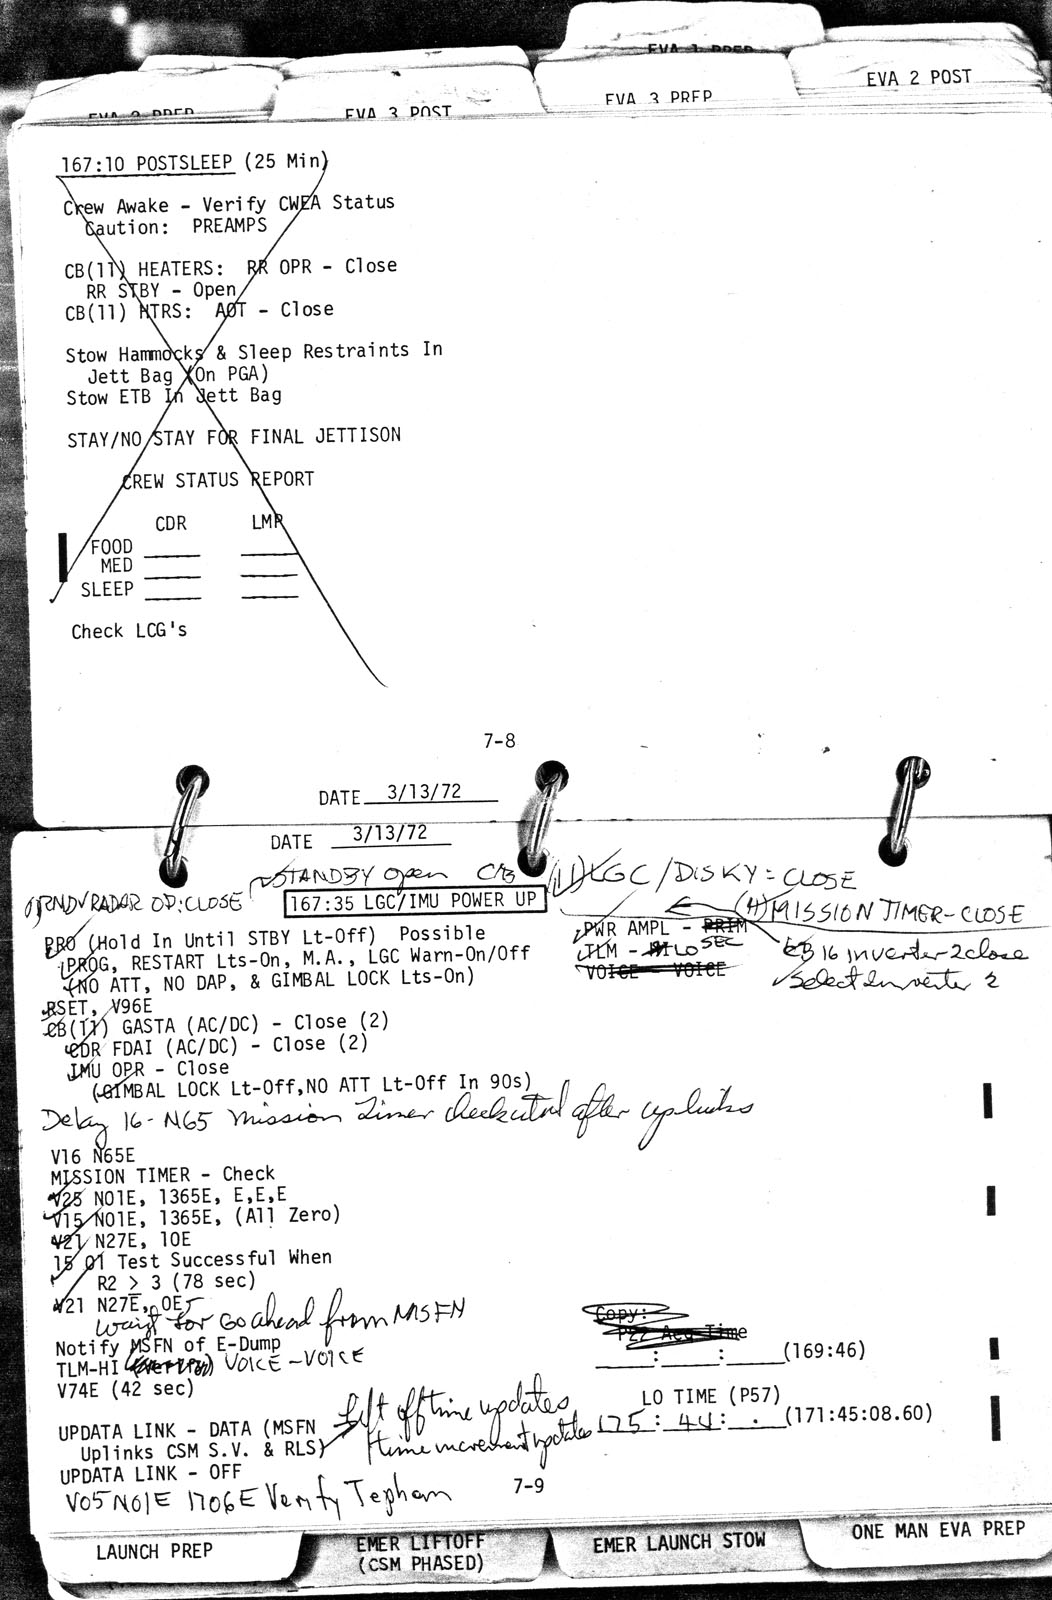 EVA 1 PREP
EVA 2 POST
EVA 3 PREP
EVA 3 POST
EVA 2 PREP
167:10 POSTSLEEP (25 Min)
Crew Awake - Verify CWEA Status
Caution: PREAMPS
CB(11) HEATERS: RR OPR - Close
RR STBY - Open
CB(11) HTRS: AOT - Close
Stow Hammocks & Sleep Restraints In
Jett Bag (On PGA)
Stow ETB In Jett Bag
STAY/NO STAY FOR FINAL JETTISON
CREW STATUS REPORT
CDR LMP
FOOD
MED
SLEEP
Check LCG's
7-8
DATE 3/13/72
DATE 3/13/72
STANDBY open C/B (11) LGC/DISKY = CLOSE
RNDV RADAR OP: CLOSE
167:35 LGC/IMU POWER UP
(4) MISSION TIMER-CLOSE
PRO (Hold In Until STBY Lt-Off) Possible
PROG, RESTART Lts-On, M.A., LGC Warn-On/Off
(NO ATT, NO DAP, & GIMBAL LOCK Lts-On)
PWR AMPL - PRIM
SEC
TLM - HI LO
VOICE - VOICE
CB 16 inverter 2 close
Select Inverter 2
RSET, V96E
CB(11) GASTA (AC/DC) - Close (2)
CDR FDAI (AC/DC) - Close (2)
IMU OPR - Close
(GIMBAL LOCK Lt-Off,NO ATT Lt-Off In 90s)
Delay 16-N65 mission timer check until after uplinks
V16 N65E
MISSION TIMER - Check
V25 N01E, 1365E, E,E,E
V15 N01E, 1365E, (All Zero)
V21 N27E, 10E
15 01 Test Successful When
R2 > 3 (78 sec)
V21 N27E, 0E
wait for Go ahead from MSFN
Notify MSFN of E-Dump
TLM-HI VOICE-VOICE
V74E (42 sec)
Copy:
P22 Acq Time
: : (169:46)
LO TIME (P57)
175:44: . (171:45:08.60)
UPDATA LINK - DATA (MSFN
Uplinks CSM S.V. & RLS)
Lift off time updates
time increment updates
UPDATA LINK - OFF
V05 N01E 1706E Verify Tephem
7-9
LAUNCH PREP
EMER LIFTOFF
(CSM PHASED)
EMER LAUNCH STOW
ONE MAN EVA PREP